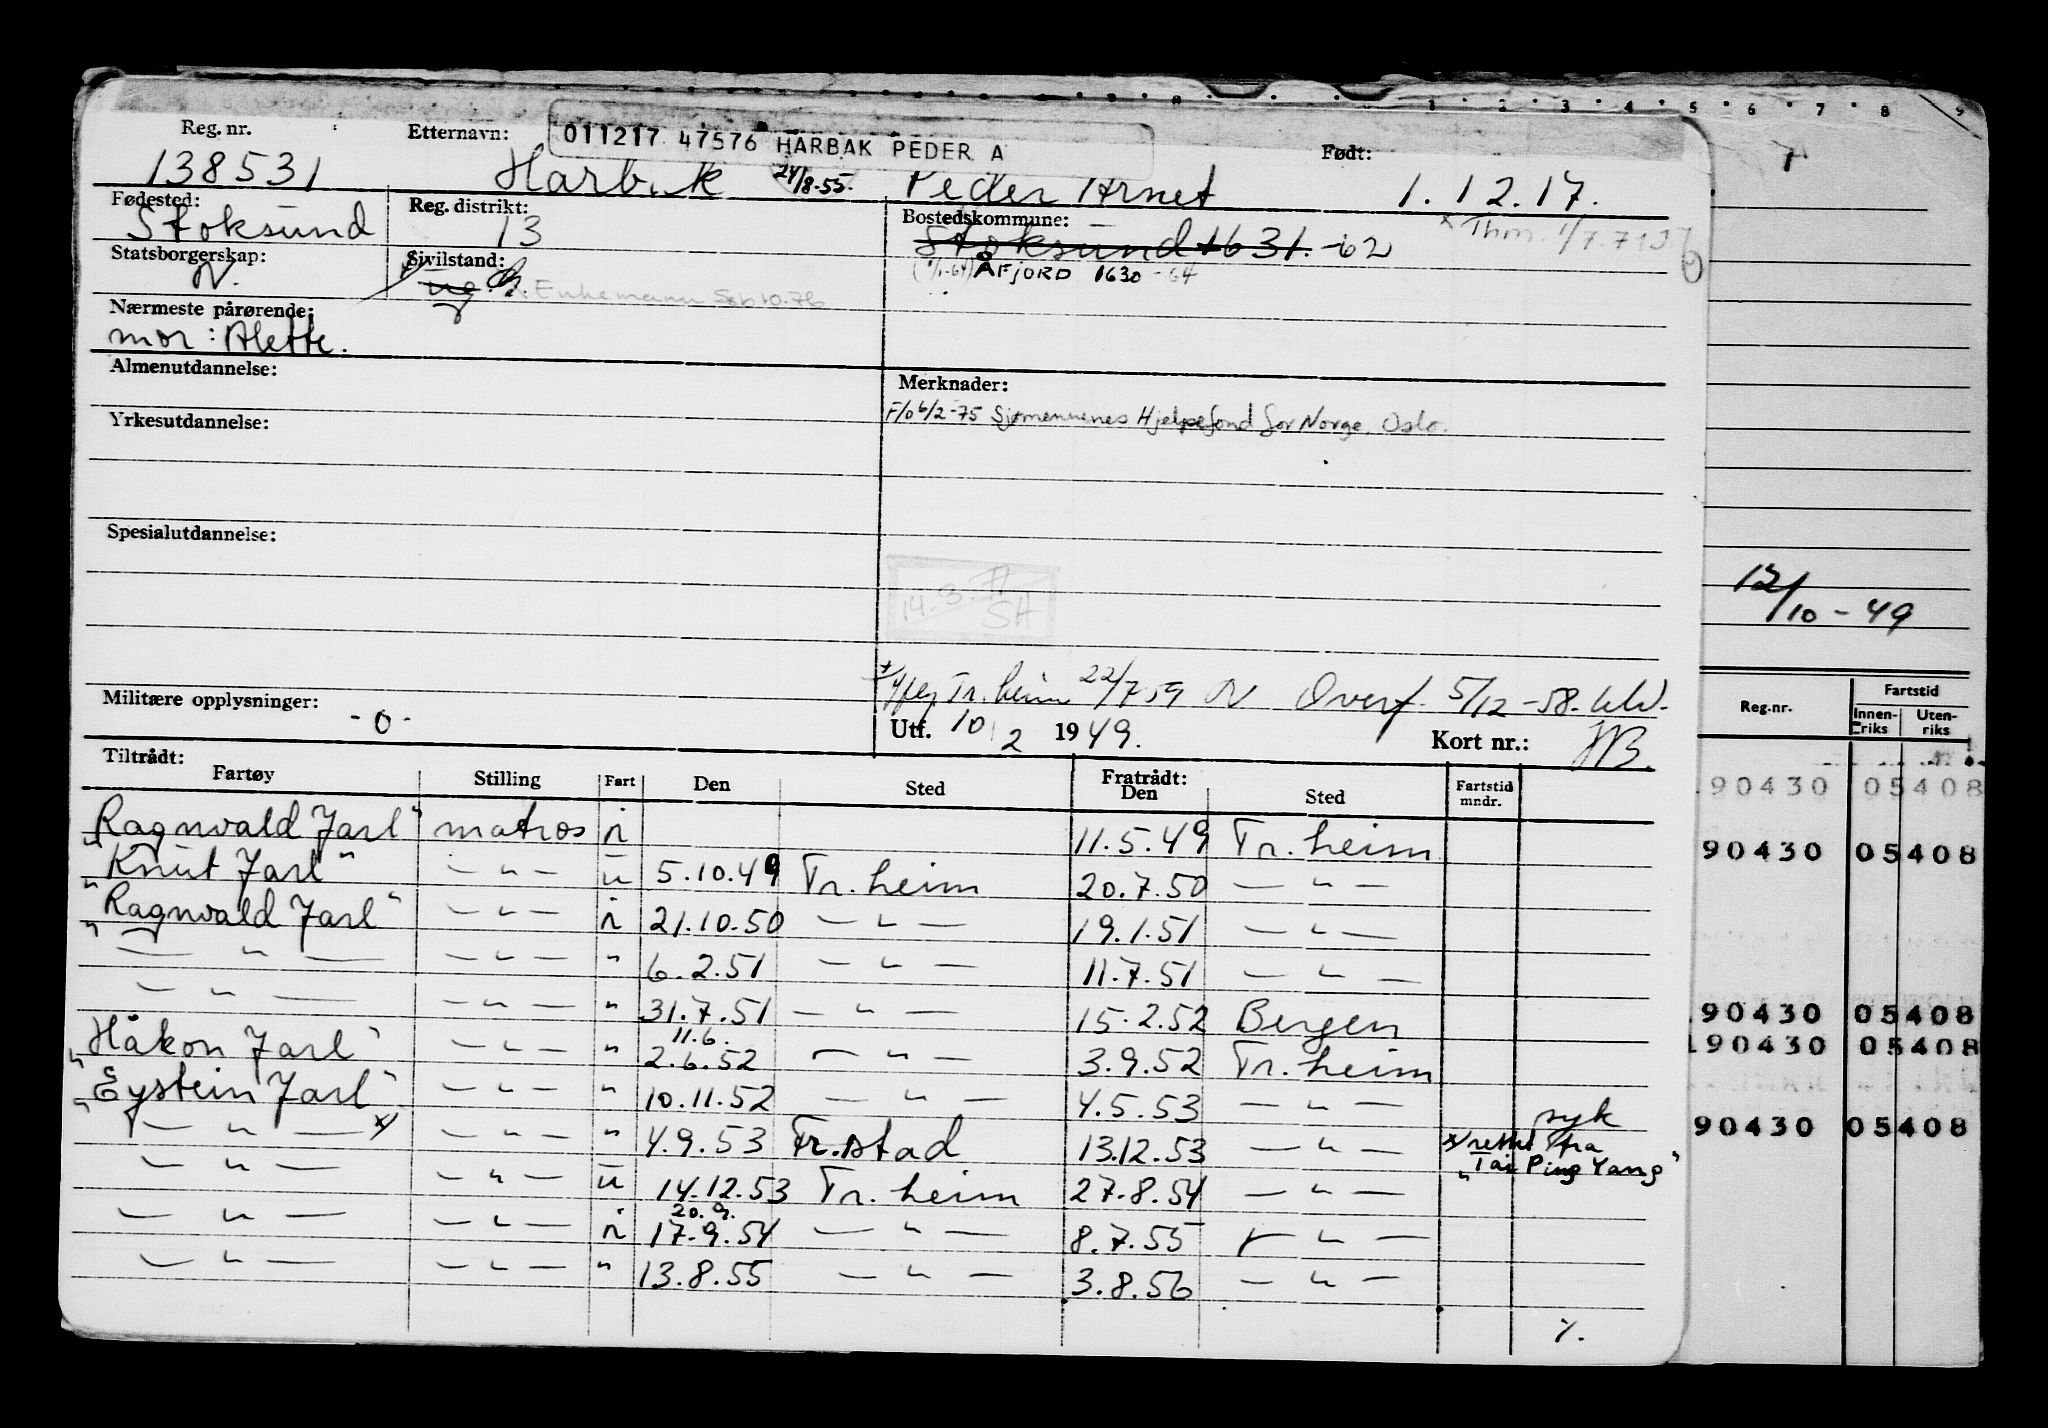 1 2 3 4 5 6 7 8 9
Reg. nr. Etternavn: 011217 47576 HARBAK PEDER A Født:
138531 Harbak 24/8-55. Peder Arnet 1.12.17.
Fødested: Reg. distrikt: Bostedskommune:
Stoksund 13 Stoksund 1631.-62 x Thm. 1/7.71
Statsborgerskap: Sivilstand: (1/1-64) ÅFJORD 1630 -64
N. ug. g. Enkemann Sep 10.76
Nærmeste pårørende:
mor: Alette.
Almenutdannelse: Merknader:
F/o 6/2-75 Sjømennenes Hjelpefond for Norge, Oslo.
Yrkesutdannelse:
Spesialutdannelse:
14.3.77
SH
12/10-49
Tr.heim 22/7 59 Overf. 5/12-58.
Militære opplysninger: -0-
Utf. 10/2 1949. Kort nr.:
Tiltrådt: Fratrådt:
Fartøy Stilling Fart Den Sted Den Sted Fartstid mndr.
"Ragnvald Jarl" matros i 11.5.49 Tr.heim
"Knut Jarl" — " — u 5.10.49 Tr.heim 20.7.50 — " —
"Ragnvald Jarl" — " — i 21.10.50 — " — 19.1.51 — " —
— " — — " — " 6.2.51 — " — 11.7.51 — " —
— " — — " — " 31.7.51 — " — 15.2.52 Bergen
11.6.
"Håkon Jarl" — " — " 2.6.52 — " — 3.9.52 Tr.heim
"Eystein Jarl" — " — " 10.11.52 — " — 4.5.53 — " — syk
— " — x) — " — " 4.9.53 Fr.stad 13.12.53 — " — x) rettet fra
"Tai Ping Yang"
— " — — " — u 14.12.53 Tr.heim 27.8.54 — " —
20.9.
— " — — " — i 17.9.54 — " — 8.7.55 — " —
— " — — " — " 13.8.55 — " — 3.8.56 — " —
Reg.nr. Fartstid
Innenriks Utenriks
90430 05408
90430 05408
90430 05408
190430 05408
90430 05408